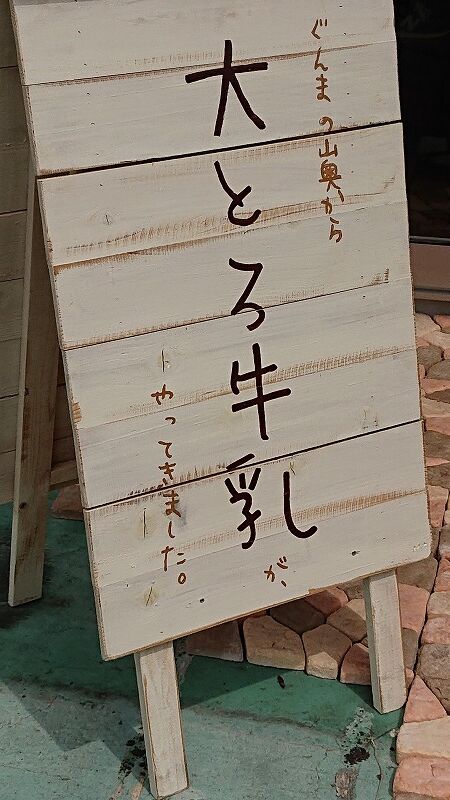 ぐんまの山奥から
大とろ牛乳が、
やってきました。